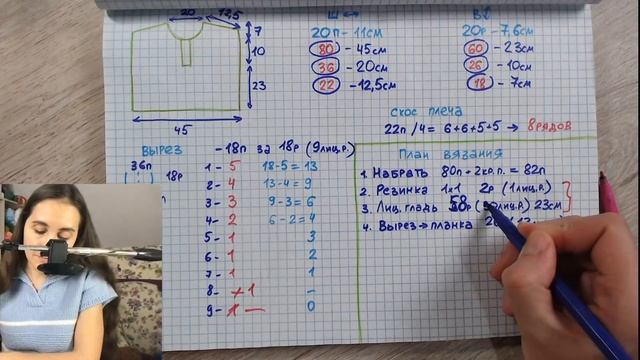 20
12,5
7
10
23
45
Ш ↔
20п - 11см
80 - 45см
36 - 20см
22 - 12,5см
В↕
20р - 7,6см
60 - 23см
26 - 10см
18 - 7см
скос плеча
22п /4 = 6+6+5+5 → 8рядов
Вырез - 18п за 18р (9лиц.р.)
36п
18р
1 - 5 18-5 = 13
2 - 4 13-4 = 9
3 - 3 9-3 = 6
4 - 2 6-2 = 4
5 - 1 3
6 - 1 2
7 - 1 1
8 - 1 -
9 - 0
План вязания
1. Набрать 80п + 2кр.п. = 82п
2. Резинка 1x1 2р (1лиц.р.)
3. Лиц. гладь 58р лиц.р.) 23см
4. Вырез → планка